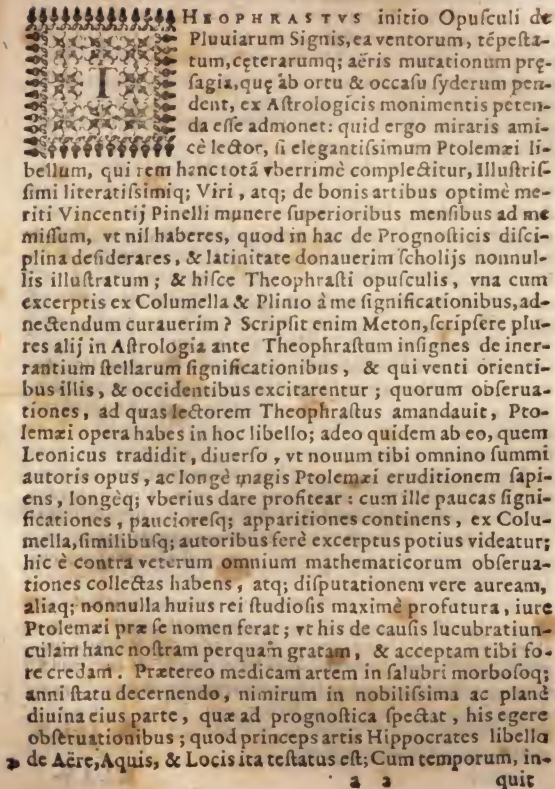 THEOPHRASTVS initio Opuſculi de
Pluuiarum Signis, ea ventorum, tẽpeſta-
tum, cęterarumq; aëris mutationum prę-
ſagia, quę ab ortu & occaſu ſyderum pen-
dent, ex Aſtrologicis monimentis peten-
da eſſe admonet: quid ergo miraris ami-
cè lector, ſi elegantiſsimum Ptolemæi li-
bellum, qui rem hanc totã vberrimè complectitur, Illuſtriſ-
ſimi literatiſsimiq; Viri, atq; de bonis artibus optimè me-
riti Vincentij Pinelli munere ſuperioribus menſibus ad me
miſſum, vt nil haberes, quod in hac de Prognoſticis diſci-
plina deſiderares, & latinitate donauerim ſcholijs nonnul-
lis illuſtratum; & hiſce Theophraſti opuſculis, vna cum
excerptis ex Columella & Plinio à me ſignificationibus, ad-
nectendum curauerim? Scripſit enim Meton, ſcripſere plu-
res alij in Aſtrologia ante Theophraſtum inſignes de iner-
rantium ſtellarum ſignificationibus, & qui venti orienti-
bus illis, & occidentibus excitarentur; quorum obſerua-
tiones, ad quas lectorem Theophraſtus amandauit, Pto-
lemæi opera habes in hoc libello; adeo quidem ab eo, quem
Leonicus tradidit, diuerſo, vt nouum tibi omnino ſummi
autoris opus, ac longè magis Ptolemæi eruditionem ſapi-
ens, longèq; vberius dare profitear: cum ille paucas ſigni-
ficationes, paucioreſq; apparitiones continens, ex Colu-
mella, ſimilibuſq; autoribus ferè excerptus potius videatur;
hic è contra veterum omnium mathematicorum obſerua-
tiones collectas habens, atq; diſputationem vere auream,
aliaq; nonnulla huius rei ſtudioſis maximè profutura, iure
Ptolemæi præ ſe nomen ferat; vt his de cauſis lucubratiun-
culam hanc noſtram perquam gratam, & acceptam tibi fo-
re credam. Prætereo medicam artem in ſalubri morboſoq;
anni ſtatu decernendo, nimirum in nobiliſsima ac planè
diuina eius parte, quæ ad prognoſtica ſpectat, his egere
obſeruationibus; quod princeps artis Hippocrates libello
„ de Aëre, Aquis, & Locis ita teſtatus eſt; Cum temporum, in-
a 2 quit